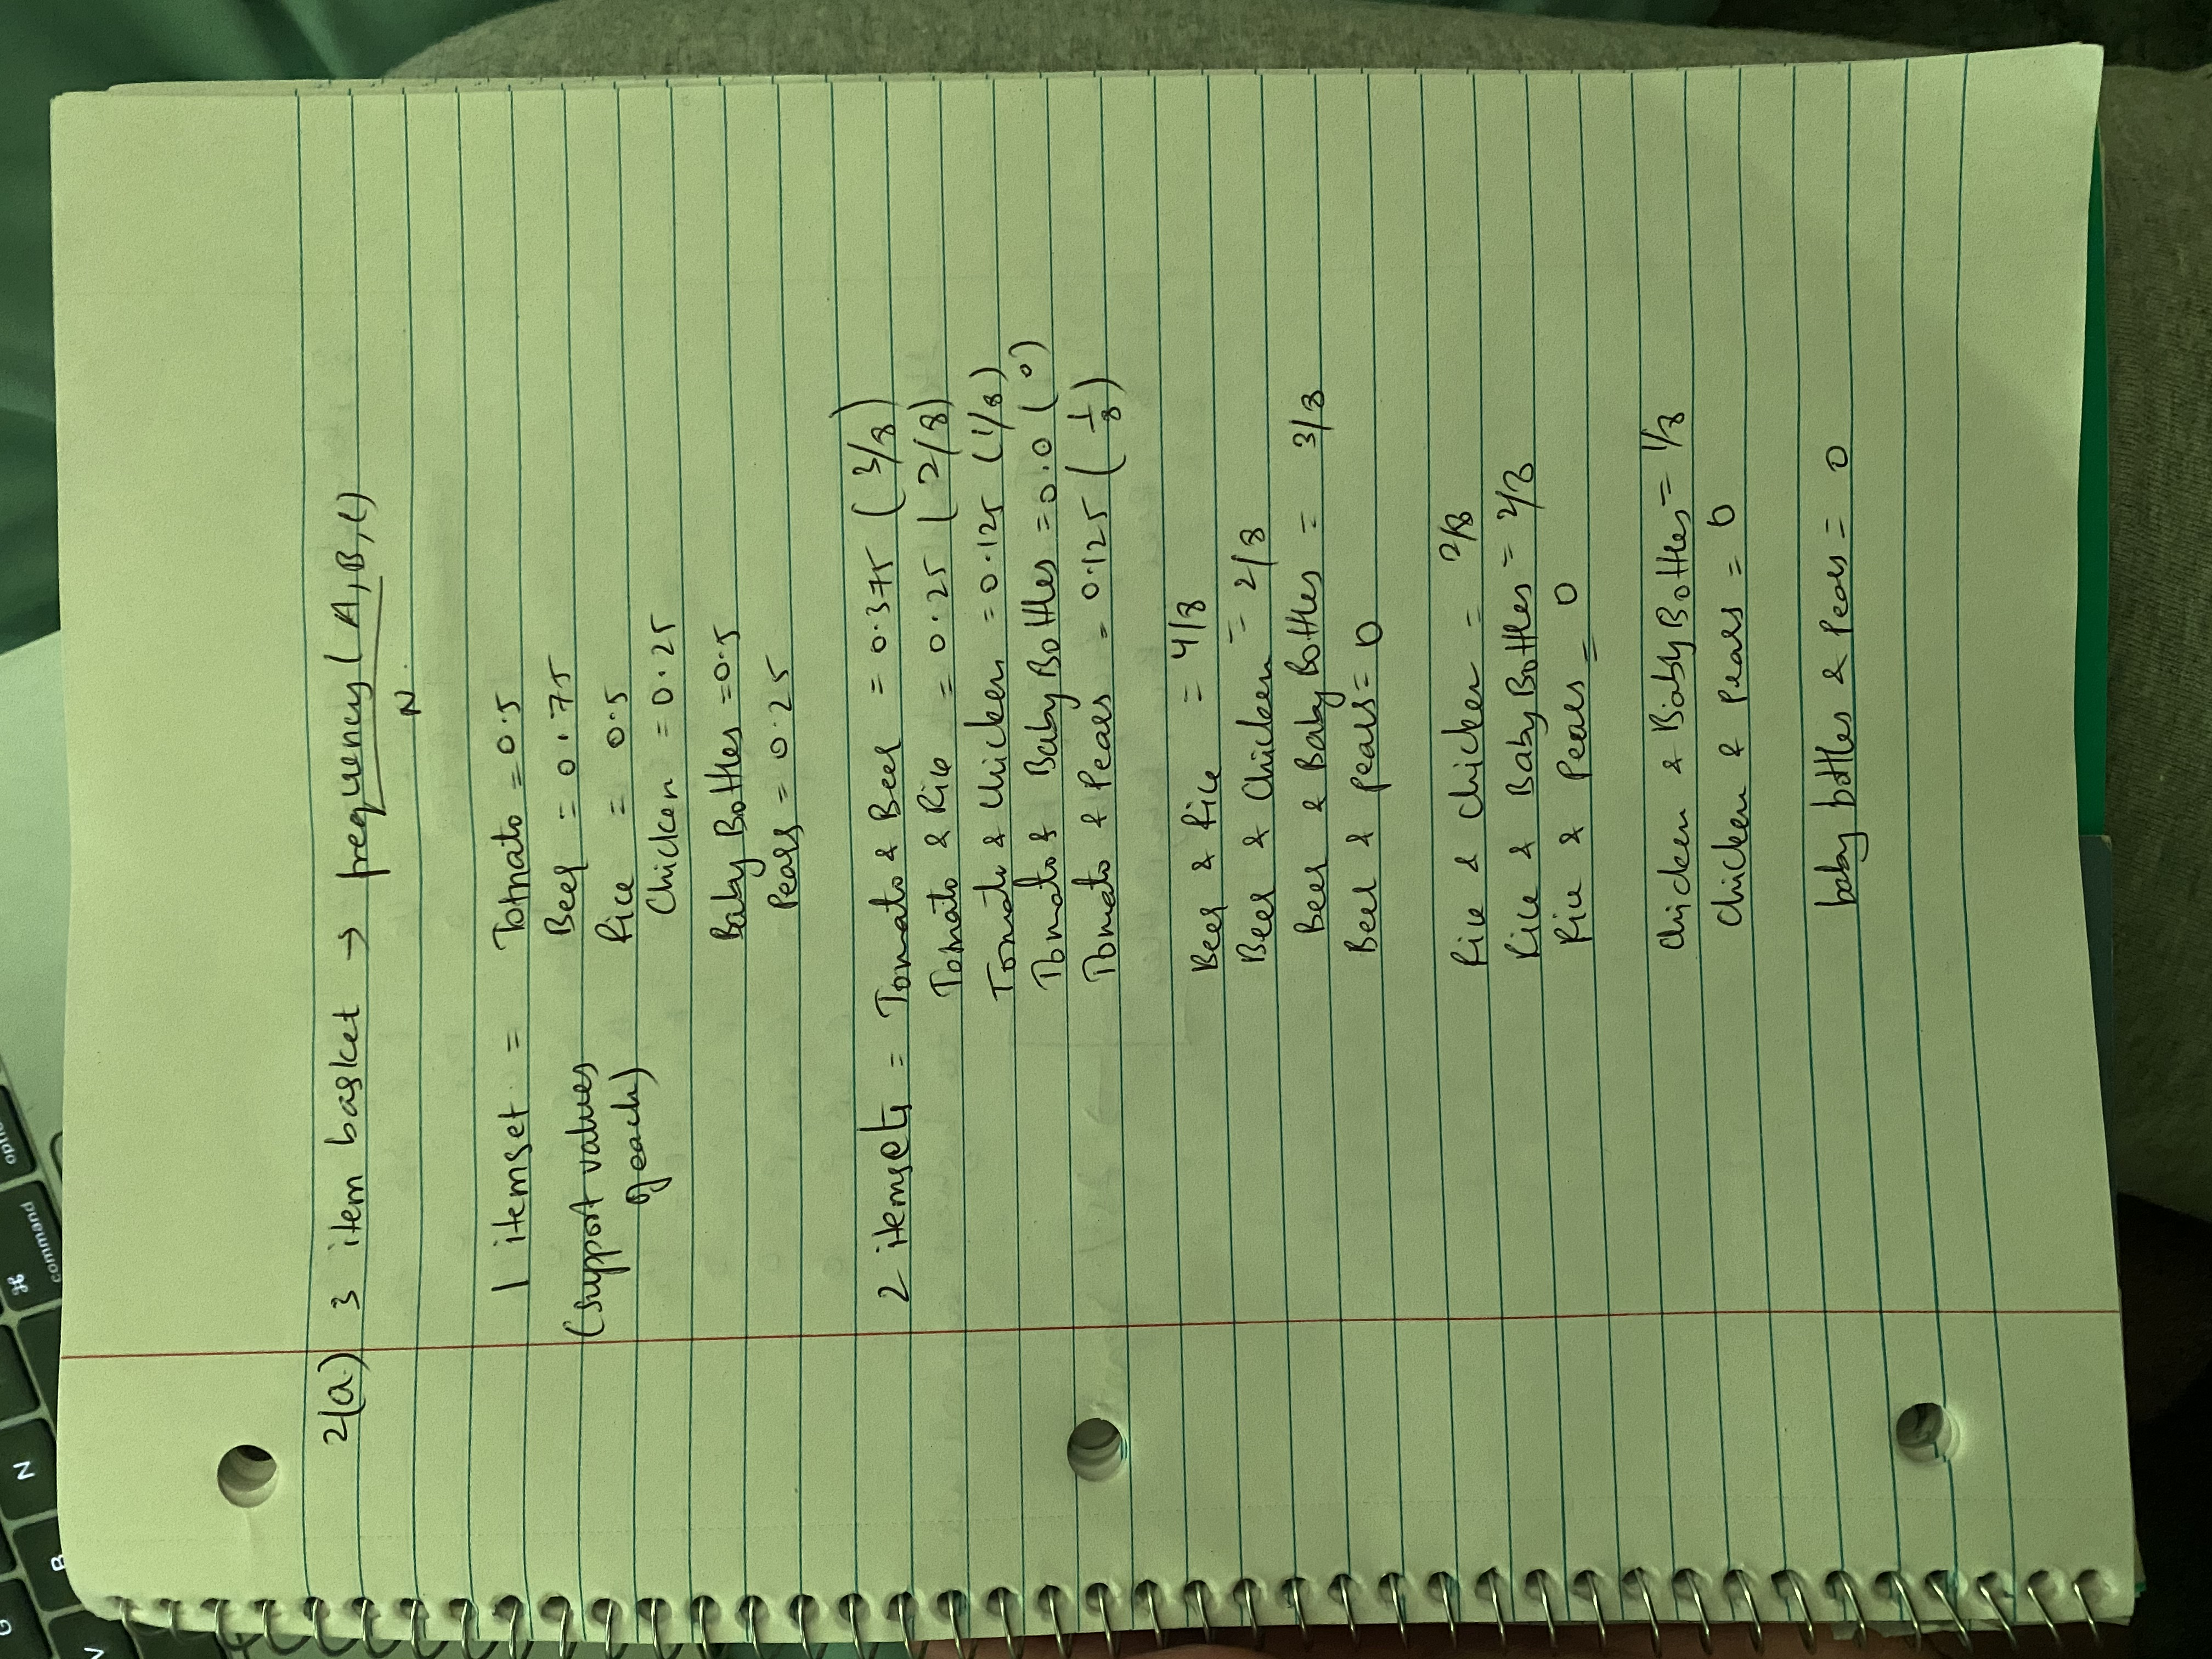 2(a) 3 item basket → frequency(A,B,C)
N
1 itemset = Tomato = 0.5
(support values of each)
Beer = 0.75
Rice = 0.5
Chicken = 0.25
Baby Bottles = 0.5
Pears = 0.25
2 itemsets = Tomato & Beer = 0.375 (3/8)
Tomato & Rice = 0.25 (2/8)
Tomato & Chicken = 0.125 (1/8)
Tomato & Baby Bottles = 0.0 (0)
Tomato & Pears = 0.125 (1/8)
Beer & Rice = 4/8
Beer & Chicken = 2/8
Beer & Baby Bottles = 3/8
Beer & Pears = 0
Rice & Chicken = 2/8
Rice & Baby Bottles = 2/8
Rice & Pears = 0
Chicken & Baby Bottles = 1/8
Chicken & Pears = 0
baby bottles & Pears = 0
command
⌘
N
B
V
G